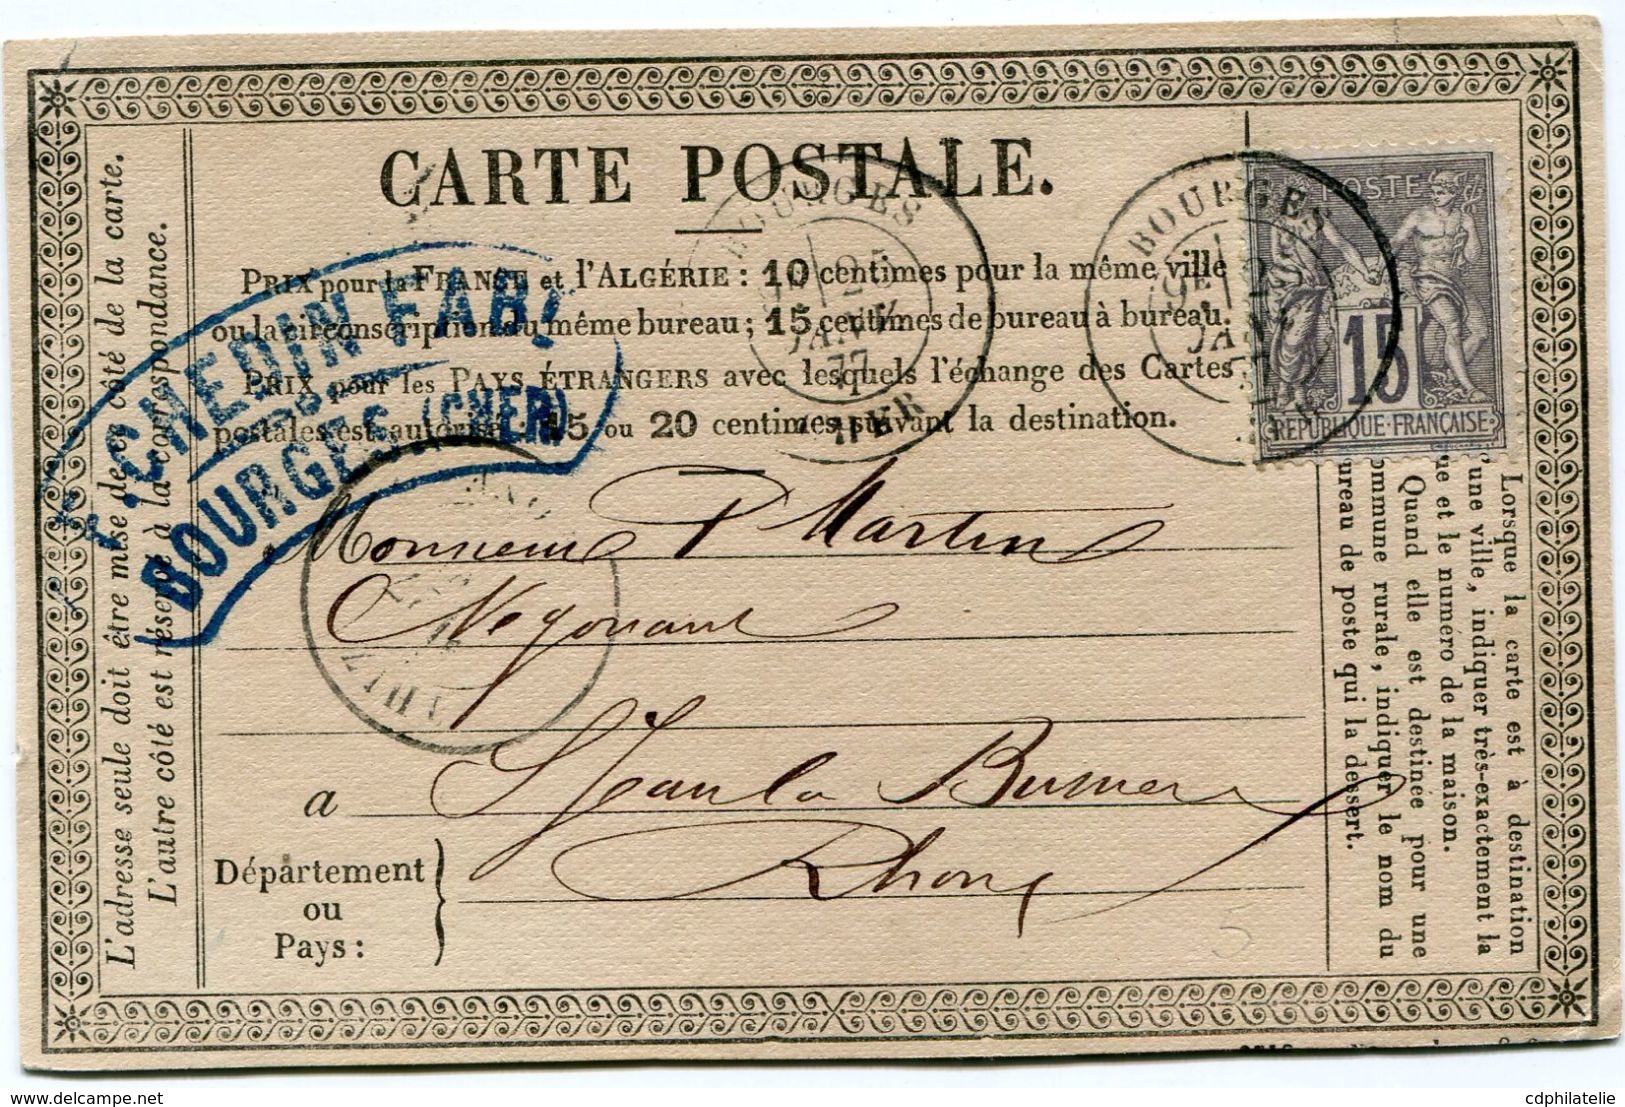 CARTE POSTALE.
PRIX pour la FRANCE et l'ALGÉRIE : 10 centimes pour la même ville
ou la circonscription du même bureau ; 15 centimes de bureau à bureau.
PRIX pour les PAYS ÉTRANGERS avec lesquels l'échange des Cartes
postales est autorisé : 15 ou 20 centimes suivant la destination.
L'adresse seule doit être mise de ce côté de la carte.
L'autre côté est réservé à la correspondance.
CHEDIN FAB
BOURGES. (CHER)
BOURGES
25
JANV.
77
CHER
BOURGES
9E
25
JANV
77
POSTE
15
REPUBLIQUE FRANÇAISE
Monsieur P Martin
Negociant
a St Jean la Bussiere
Département
ou
Pays :
Rhone
Lorsque la carte est à destination
d'une ville, indiquer très-exactement la
rue et le numéro de la maison.
Quand elle est destinée pour une
commune rurale, indiquer le nom du
bureau de poste qui la dessert.
cdphilatelie